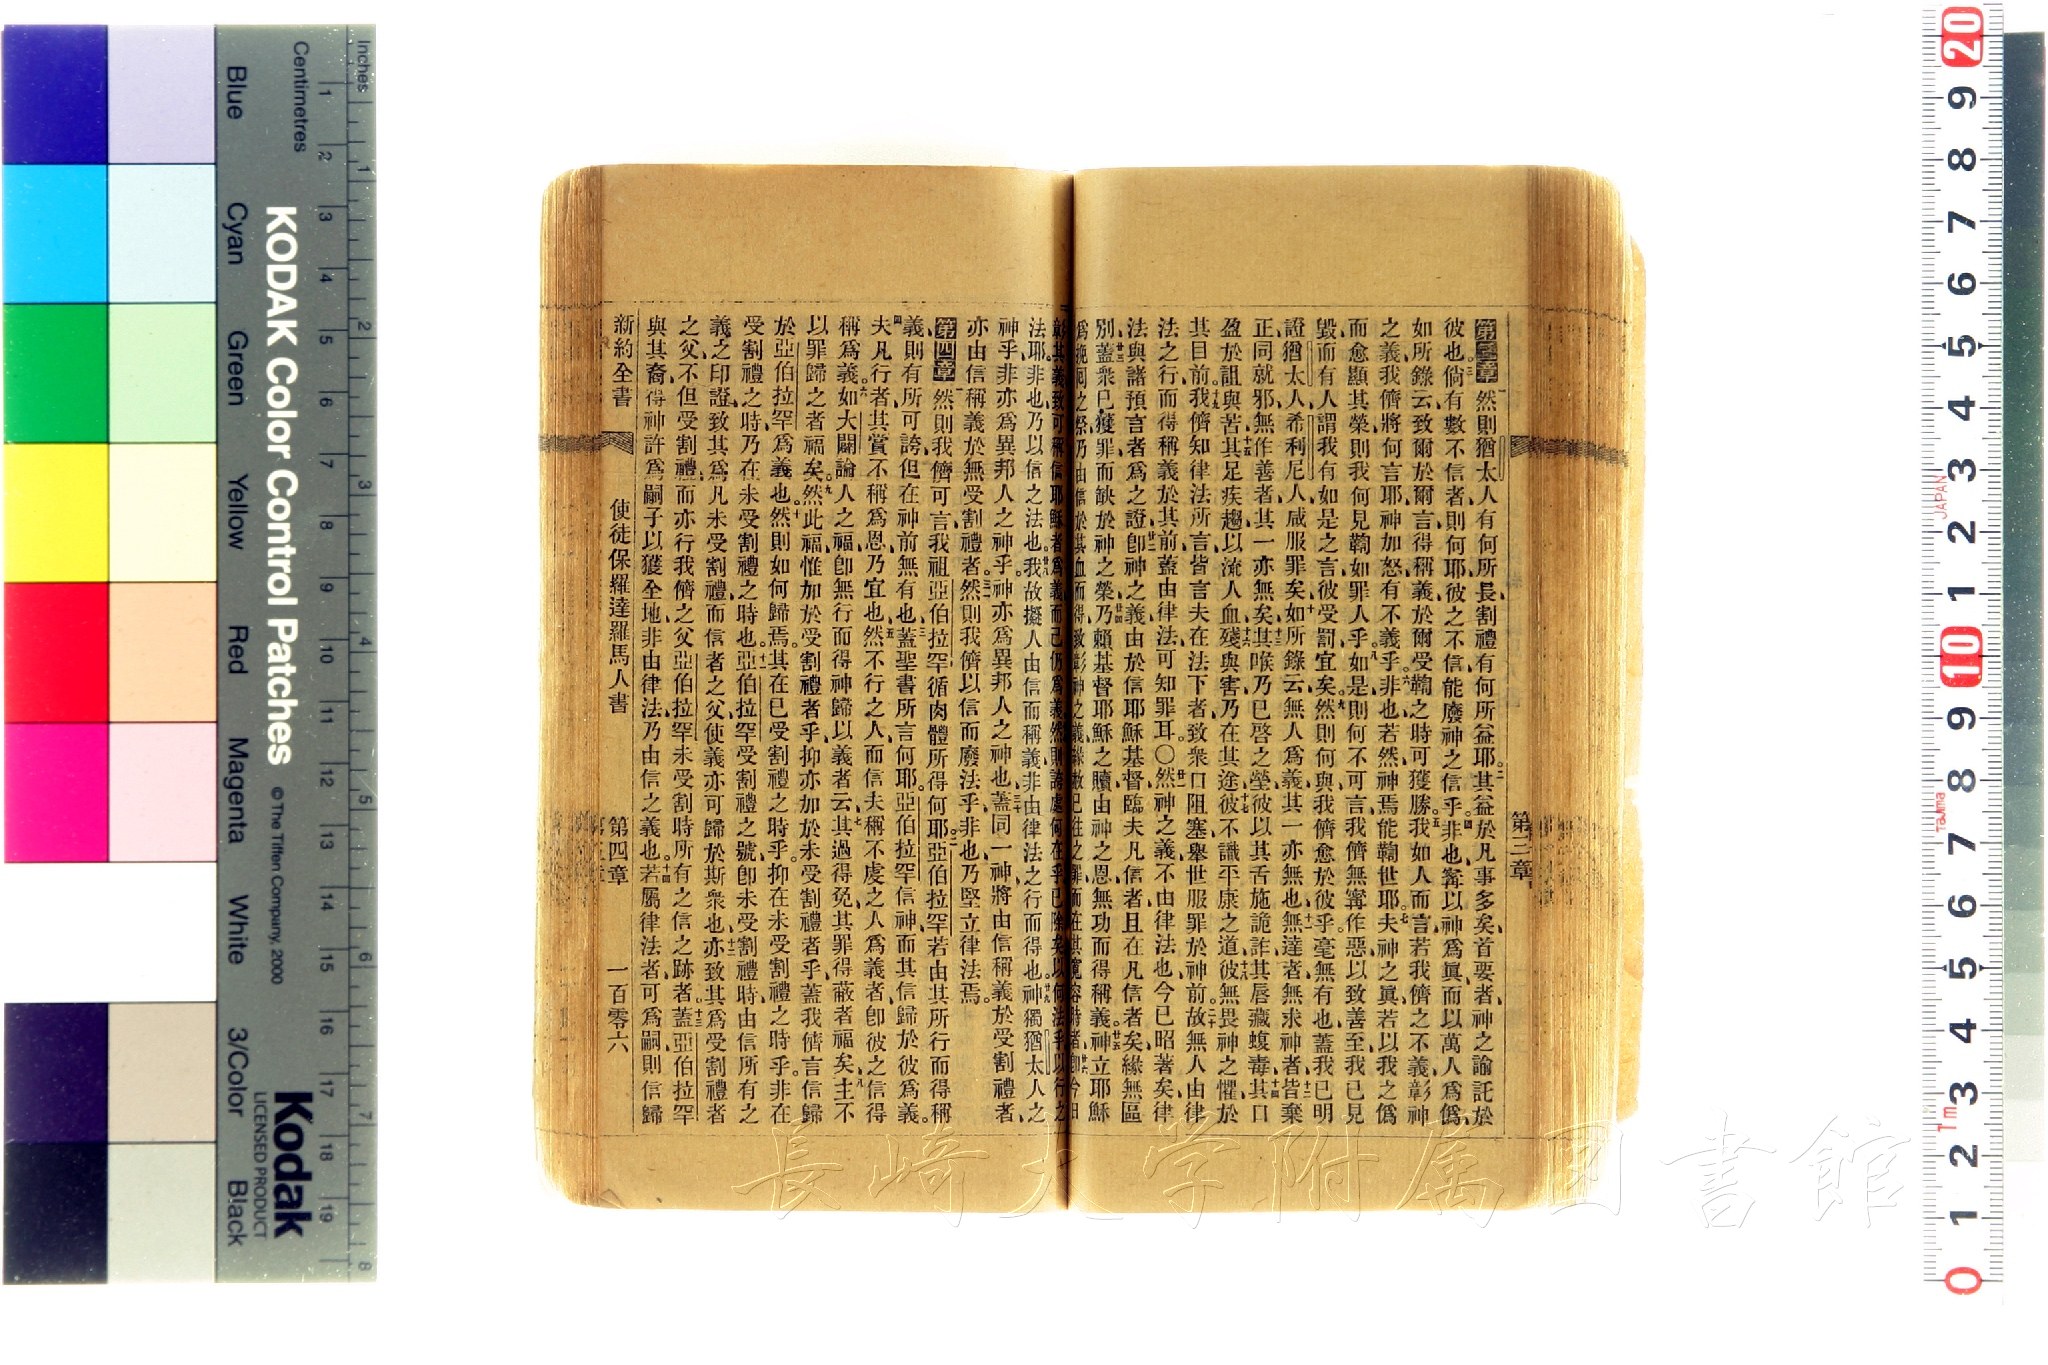 第三章
第三章 然則猶太人有何所長割禮有何所益耶其益於凡事多矣首要者神之諭託於
彼也倘有數不信者則何耶彼之不信能廢神之信乎非也寗以神爲眞而以萬人爲僞
如所錄云致爾於爾言得稱義於爾受鞫之時可獲勝我如人而言若我儕之不義彰神
之義我儕將何言耶神加怒有不義乎非也若然神焉能鞫世耶夫神之眞若以我之僞
而愈顯其榮則我何見鞫如罪人乎如是則何不可言我儕無寗作惡以致善至我已見
毀而有人謂我有如是之言彼受罰宜矣然則何與我儕愈於彼乎毫無有也蓋我已明
證猶太人希利尼人咸服罪矣如所錄云無人爲義其一亦無也無達者無求神者皆棄
正同就邪無作善者其一亦無矣其喉乃已啓之塋彼以其舌施詭詐其唇藏蝮毒其口
盈於詛與苦其足疾趨以流人血殘與害乃在其途彼不識平康之道彼無畏神之懼於
其目前我儕知律法所言皆言夫在法下者致衆口阻塞舉世服罪於神前故無人由律
法之行而得稱義於其前蓋由律法可知罪耳〇然神之義不由律法也今已昭著矣律
法與諸預言者爲之證卽神之義由於信耶穌基督臨夫凡信者且在凡信者矣緣無區
別蓋衆已獲罪而缺於神之榮乃賴基督耶穌之贖由神之恩無功而得稱義神立耶穌
法耶非也乃以信之法也我故擬人由信而稱義非由律法之行而得也神獨猶太人之
神乎非亦爲異邦人之神乎神亦爲異邦人之神也蓋同一神將由信稱義於受割禮者
亦由信稱義於無受割禮者然則我儕以信而廢法乎非也乃堅立律法焉
第四章 然則我儕可言我祖亞伯拉罕循肉體所得何耶亞伯拉罕若由其所行而得稱
義則有所可誇但在神前無有也蓋聖書所言何耶亞伯拉罕信神而其信歸於彼爲義
夫凡行者其賞不稱爲恩乃宜也然不行之人而信夫稱不虔之人爲義者卽彼之信得
稱爲義如大闢論人之福卽無行而得神歸以義者云其過得免其罪得蔽者福矣主不
以罪歸之者福矣然此福惟加於受割禮者乎抑亦加於未受割禮者乎蓋我儕言信歸
於亞伯拉罕爲義也然則如何歸焉其在已受割禮之時乎抑在未受割禮之時乎非在
受割禮之時乃在未受割禮之時也亞伯拉罕受割禮之號卽未受割禮時由信所有之
義之印證致其爲凡未受割禮而信者之父使義亦可歸於斯衆也亦致其爲受割禮者
之父不但受割禮而亦行我儕之父亞伯拉罕未受割時所有之信之跡者蓋亞伯拉罕
與其裔得神許爲嗣子以獲全地非由律法乃由信之義也若屬律法者可爲嗣則信歸
新約全書 使徒保羅達羅馬人書 第四章 一百零六
Inches
Centimetres
Blue Cyan Green Yellow Red Magenta White 3/Color Black
KODAK Color Control Patches © The Tiffen Company, 2000
Kodak
LICENSED PRODUCT
JAPAN
Tajima
長崎大学附属図書館